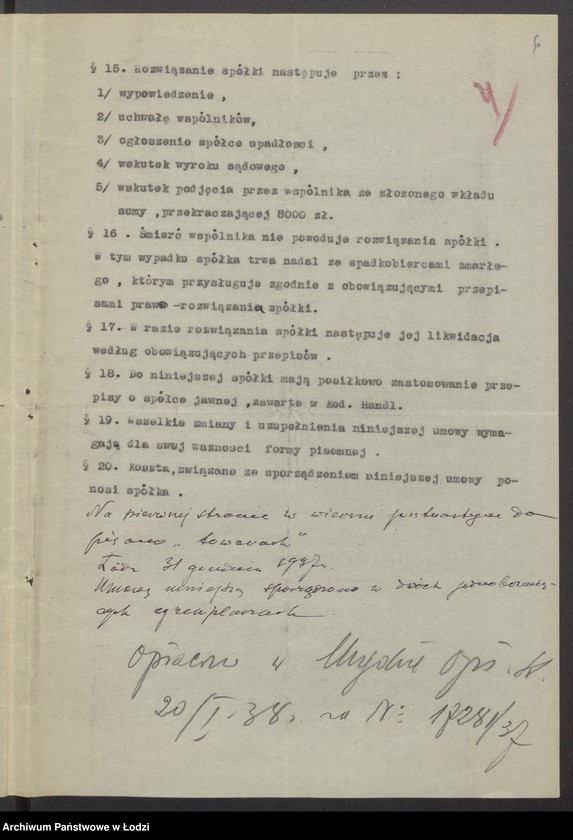 6
4/
§ 15. Rozwiązanie spółki następuje przez :
1/ wypowiedzenie ,
2/ uchwałę wspólników,
3/ ogłoszenie spółce upadłosci ,
4/ wskutek wyroku sądowego ,
5/ wskutek podjęcia przez wspólnika ze złozonego wkładu
sumy ,przekraczającej 8000 zł.
§ 16 . Śmierć wspólnika nie powoduje rozwiązania spółki .
W tym wypadku spółka trwa nadal ze spadkobiercami zmarłe-
go , którym przysługuje zgodnie z obowiązującymi przepi-
sami prawo -rozwiązania spółki.
§ 17. W razie rozwiązania spółki następuje jej likwidacja
według obowiązujących przepisów .
§ 18. Do niniejszej spółki mają posiłkowo zastosowanie prze-
pisy o spółce jawnej ,zawarte w Kod. Handl.
§ 19. Wszelkie zmiany i uzupełnienia niniejszej umowy wyma-
gają dla swej wazności formy pisemnej .
§ 20. Koszta,związane ze sporządzeniem niniejszej umowy po-
nosi spółka .
Na pierwszej stronie w wierszu piętnastym do
pisano „towarach"
Łódź 31 grudnia 1937r.
Umowę niniejszą sporządzono w dwóch jednobrzmią-
cych egzemplarzach
Opłacono w Urzędzie Opł. St.
20/I.38r. za Nº 17281/37
Archiwum Państwowe w Łodzi